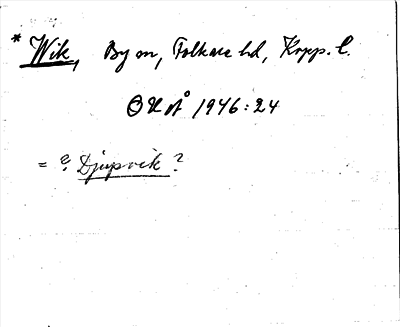 * Wik, By sn, Folkare hd, Kopp. l.
OUÅ 1946:24
= ? Djupvik?